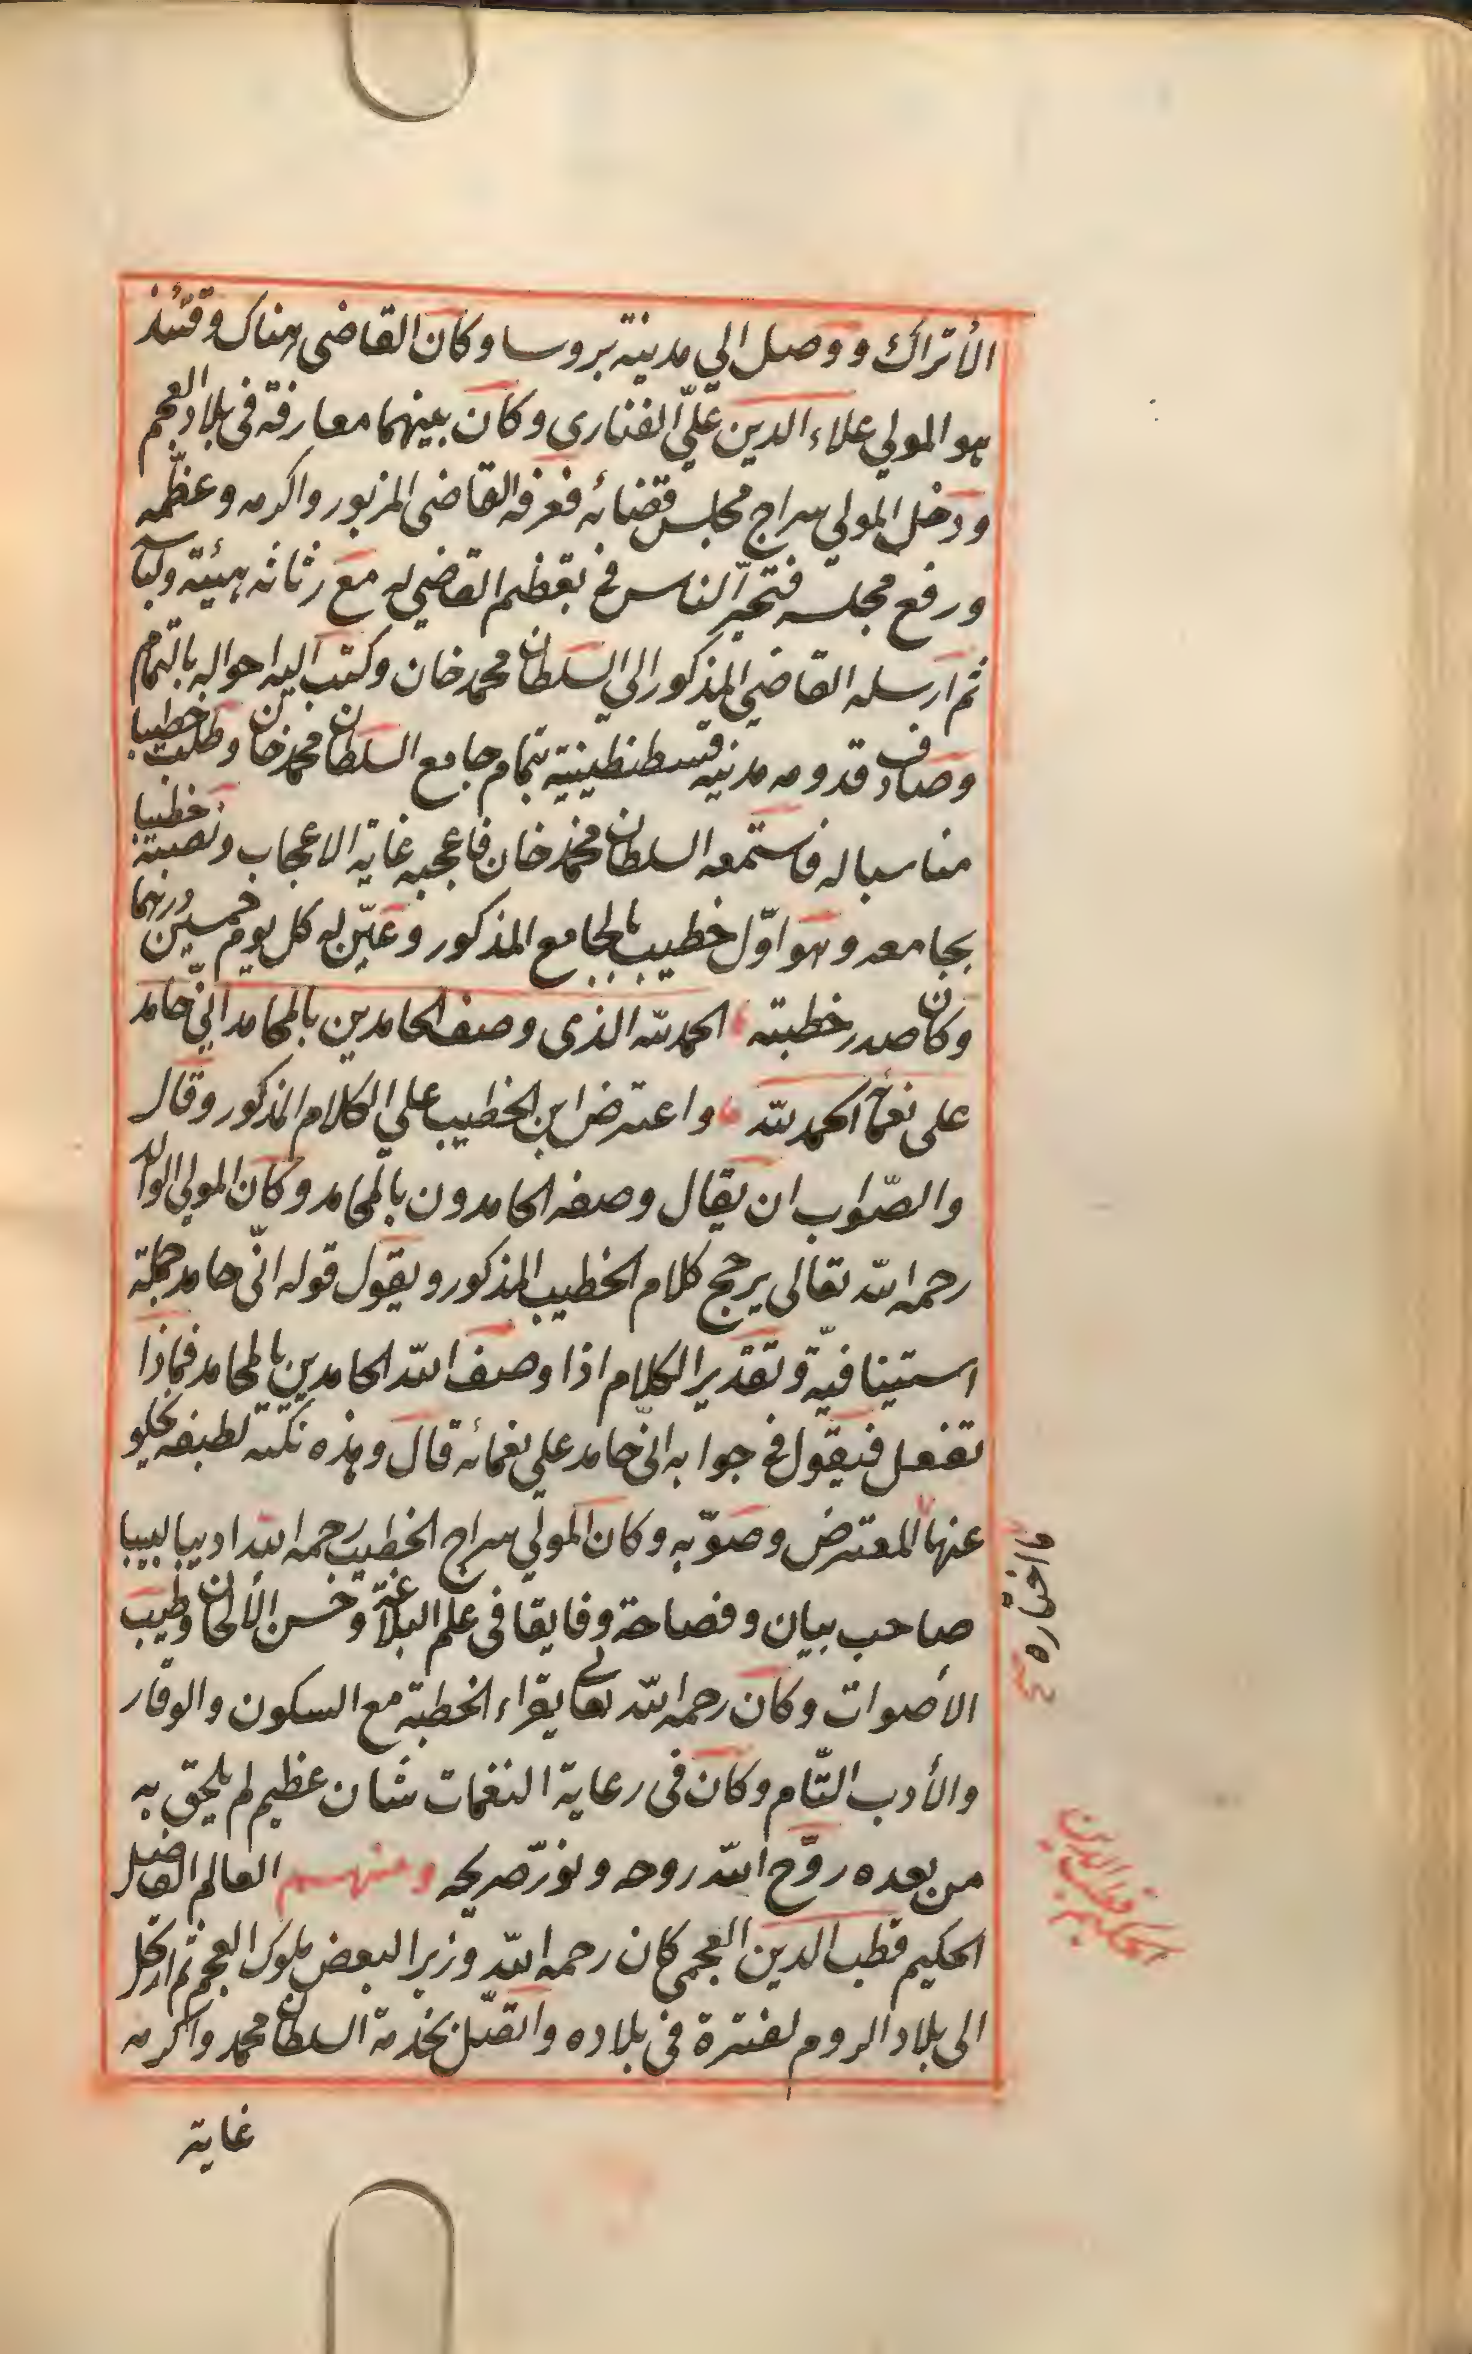 الأتراك ووصل الي مدينة بروسا وكان القاضى هناك وقتئذ
هو المولي علاء الدين علىّ الفنارى وكان بينهما معارفة فى بلاد العجم
ودخل المولي سراج مجلس قضائه فعرفه القاضى المزبور واكرمه وعظّمه
ورفع مجلسه فتحيّر الناس فى تعظيم القاضي له مع رثاثه هيئته ولباسه
ثم ارسله القاضي المذكور الي السلطان محمد خان وكتب اليه احواله بالتمام
وصادف قدومه مدنيه قسطنطينية تمام جامع السلطان محمد خان وطلب خطيبا
مناسبا له فاستمعه السلطان محمد خان فاعجبه غاية الاعجاب ونصبته خطيبا
بجامعه وهو اوّل خطيب بالجامع المذكور وعيّن له كل يوم خمسين درهما
وكان صدر خطبته الحمد لله الذى وصف الحامدين بالمحامد انّي حامد
على نعمائه الحمد لله واعترض ابن الخطيب علي الكلام المذكور وقال
والصّواب ان يقال وصفه الحامدون بالمحامد وكان المولي الوالد
رحمه الله تعالى يرجح كلام الخطيب المذكور ويقول قوله انّى حامد جملة
استينافيّة وتقدير الكلام اذا وصف الله الحامدين بالمحامد فماذا
تفعل فيقول فى جوابه انّى حامد علي نعمائه قال وهذه نكته لطيفه يخلو
عنها المعترض وصوّبه وكان المولي سراج الخطيب رحمه الله اديبا لبيبا
صاحب بيان وفصاحة وفايقا فى علم البلاغة وحسن الألحان وطيب
الأصوات وكان رحمه الله تعالى يقراء الخطبة مع السكون والوقار
والأدب التّام وكان فى رعاية النغمات شان عظيم لم يلحق به
من بعده روّح الله روحه ونوّر ضريحه ومنهم العالم الفاضل
الحكيم قطب الدين العجمى كان رحمه الله وزيرا لبعض ملوك العجم ثم ارتحل
الى بلاد الروم لفترة فى بلاده واتصّل بخدمة السلطان محمد واكرمه
غاية
واختاره
الحكيم قطب الدين